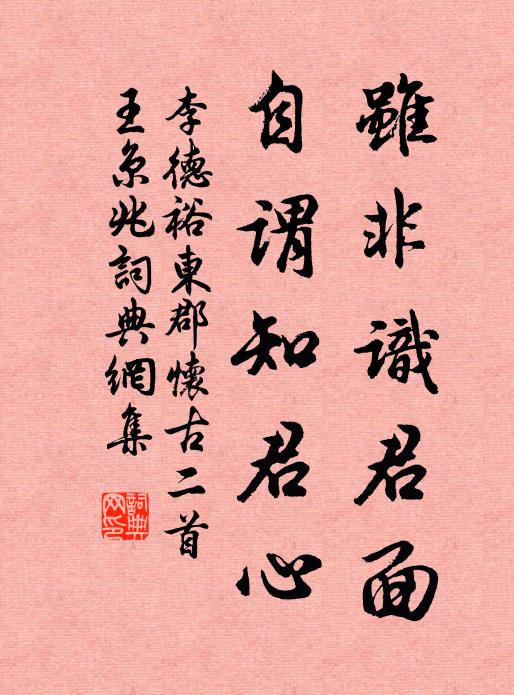 雖非識君面
自謂知君心
李德裕東郡懷古二首
王京兆詞典網集
詞典网印